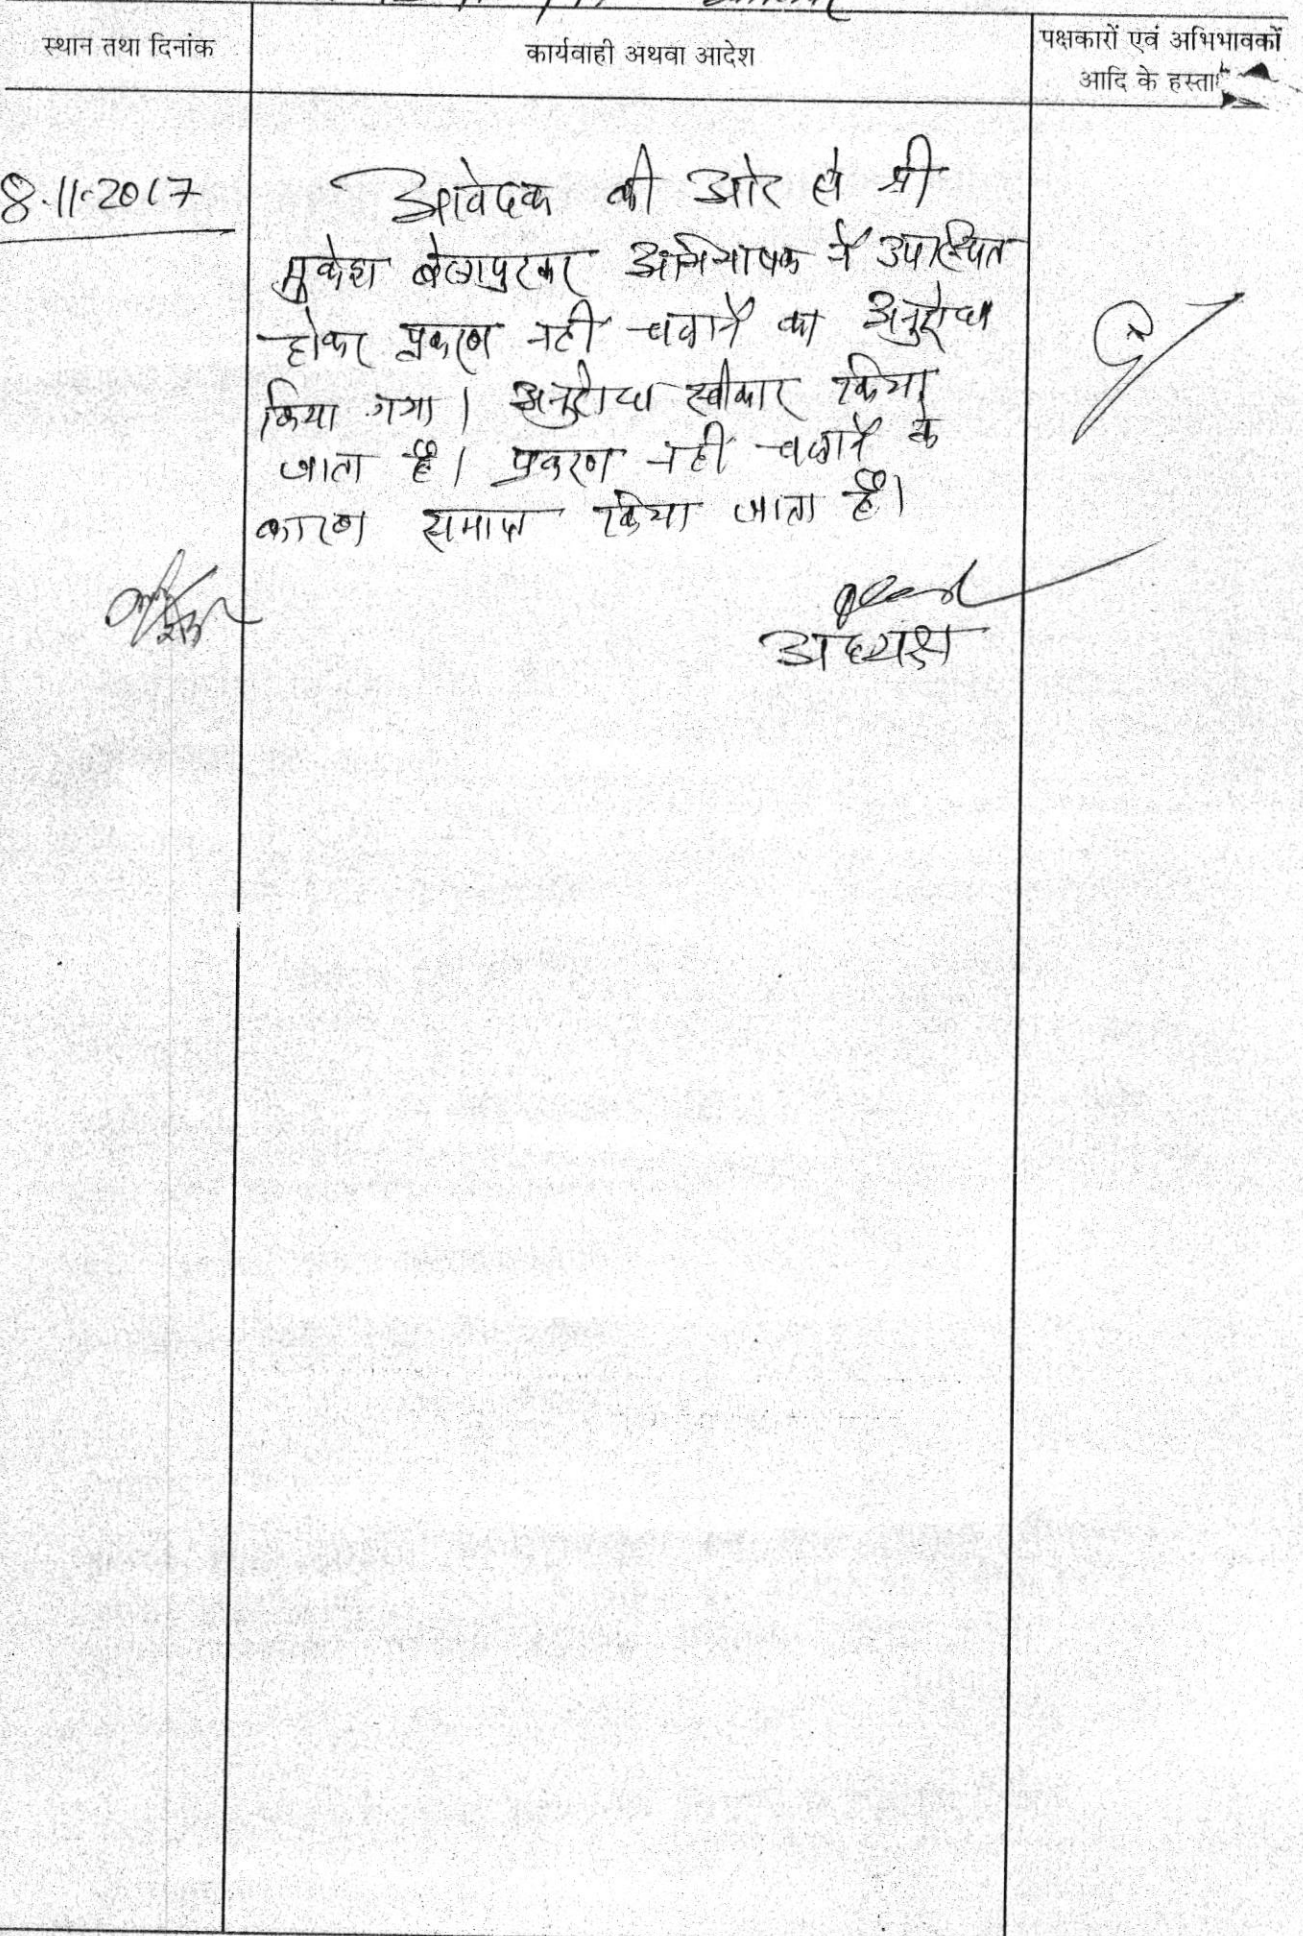 स्थान तथा दिनांक
कार्यवाही अथवा आदेश
पक्षकारों एवं अभिभावकों
आदि के हस्ता
8.11.2017
आवेदक की ओर से श्री
मुकेश बेलापुरकर अभिभाषक ने उपस्थित
होकर प्रकरण नहीं चलाने का अनुरोध
किया गया। अनुरोध स्वीकार किया
जाता है। प्रकरण नहीं चलाने के
कारण समाप्त किया जाता है।
अध्यक्ष